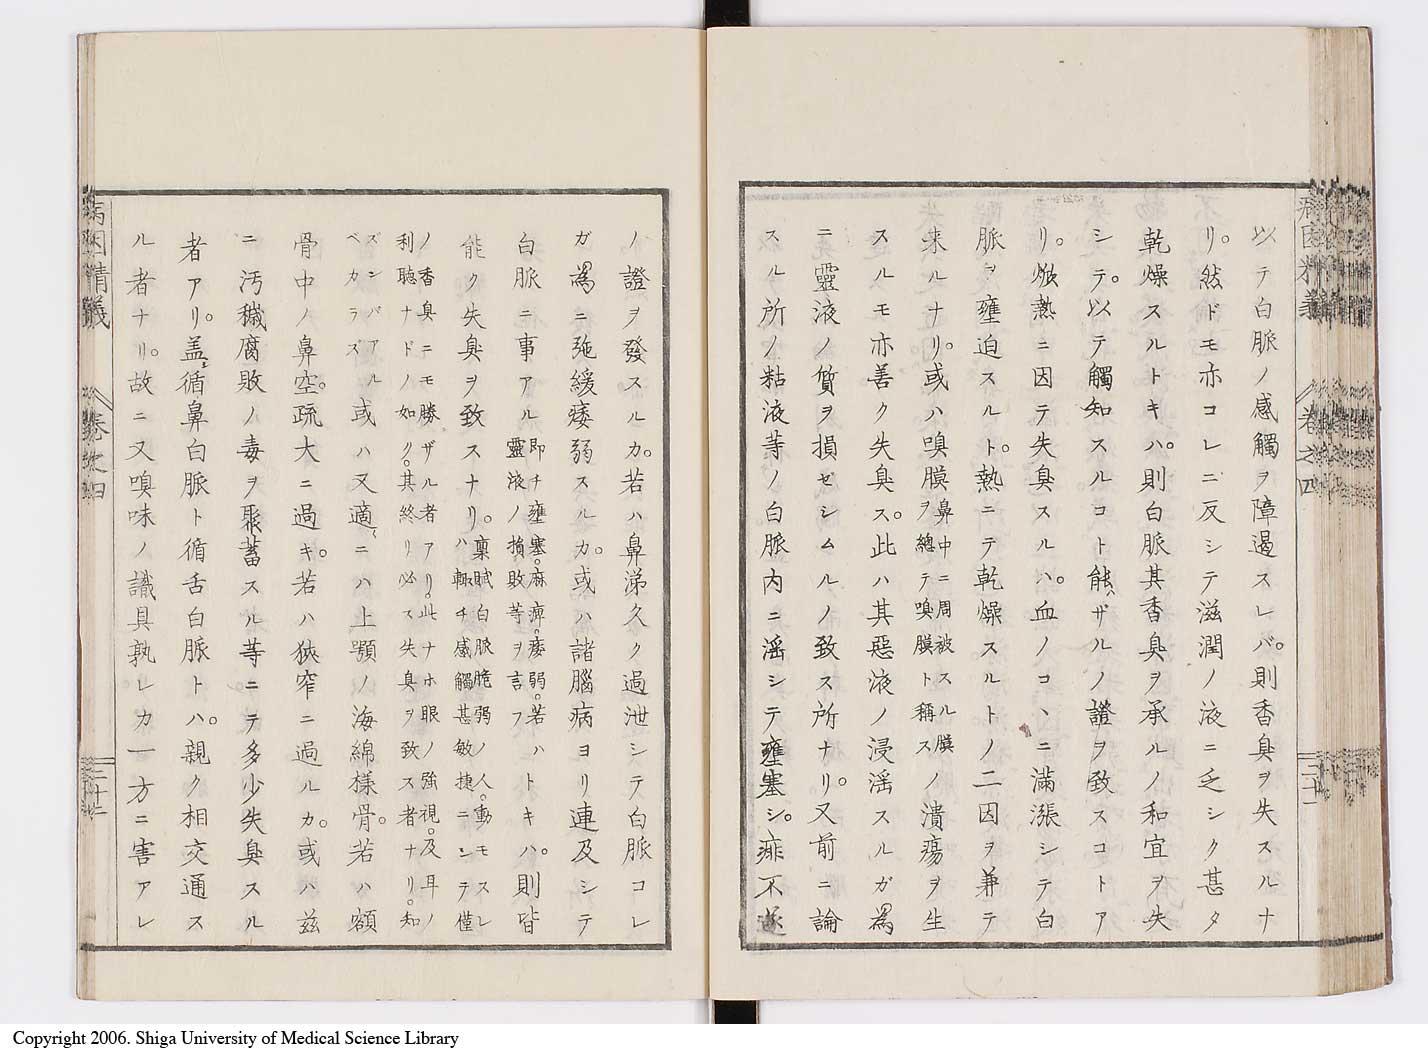 以テ白脈ノ感觸ヲ障遏スレバ。則香臭ヲ失スルナ
リ。然ドモ亦コレニ反シテ滋潤ノ液ニ乏シク甚タ
乾燥スルトキハ。則白脈其香臭ヲ承ルノ和宜ヲ失
シテ。以テ觸知スルコト能ハザルノ證ヲ致スコトア
リ。焮熱ニ因テ失臭スルハ。血ノコヽニ滿漲シテ白
脈ヲ壅迫スルト。熱ニテ乾燥スルトノ二因ヲ兼テ
来ルナリ。或ハ嗅膜ヲ鼻中ニ周被スル膜總テ嗅膜ト稱スノ潰瘍ヲ生
スルモ亦善ク失臭ス。此ハ其惡液ノ浸淫スルガ爲
ニ靈液ノ質ヲ損ゼシムルノ致ス所ナリ。又前ニ論
スル所ノ粘液等ノ白脈内ニ淫シテ壅塞シ。痱不遂
病因精義 巻之四 二十一
ノ證ヲ發スルカ。若ハ鼻涕久ク過泄シテ白脈コレ
ガ爲ニ弛緩痿弱スルカ。或ハ諸腦病ヨリ連及シテ
白脈ニ事アル即チ壅塞。麻痺。痿弱。若ハ靈液ノ損敗等ヲ言フトキハ。則皆
能ク失臭ヲ致スナリ。稟賦白脈脆弱ノ人。動モスレハ輙チ感觸甚敏捷ニシテ僅
ノ香臭ニモ勝ザル者アリ。此ナホ眼ノ強視。及耳ノ
利聴ナドノ如ク。其終リ必ス失臭ヲ致ス者ナリ。知
ズンバアル
ベカラズ或ハ又適〻ニハ上顎ノ海綿樣骨。若ハ額
骨中ノ鼻空。疏大ニ過キ。若ハ狹窄ニ過ルカ。或ハ茲
ニ汚穢腐敗ノ毒ヲ聚蓄スル等ニテ多少失臭スル
者アリ。盖循鼻白脈ト循舌白脈トハ。親ク相交通ス
ル者ナリ。故ニ又嗅味ノ識具孰レカ一方ニ害アレ
病因精義 巻之四 二十二
Copyright 2006. Shiga University of Medical Science Library